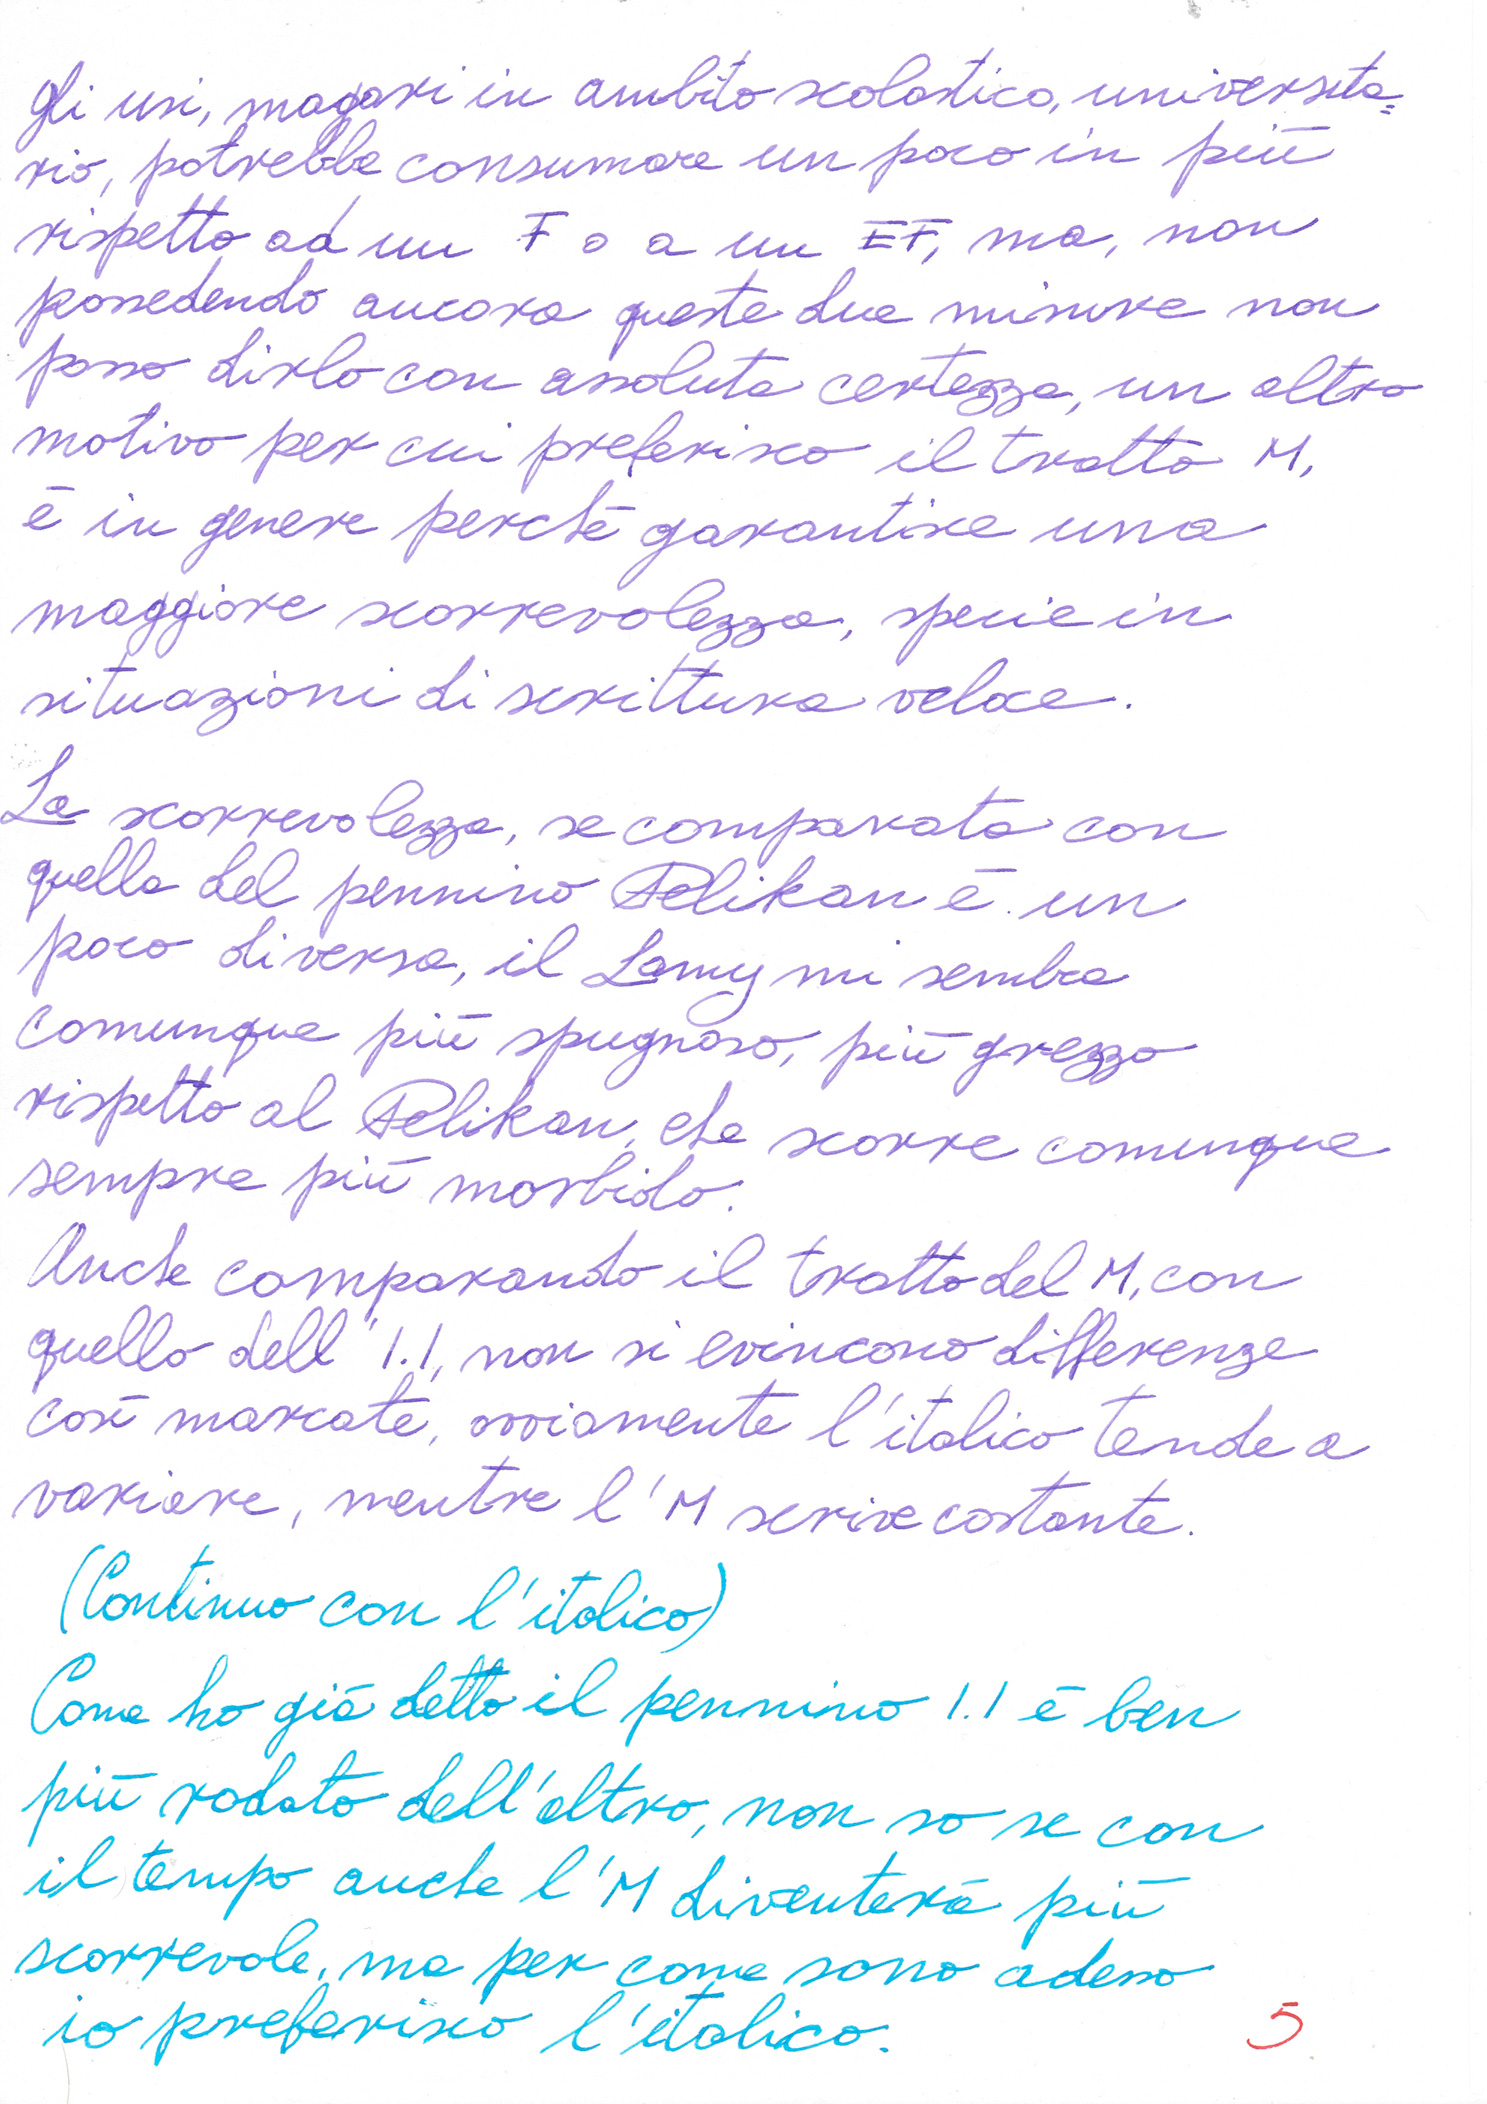 gli usi, magari in ambito scolastico, universita=
rio, potrebbe consumare un poco in più
rispetto ad un F o a un EF, ma, non
possedendo ancora queste due misure non
posso dirlo con assoluta certezza, un altro
motivo per cui preferisco il tratto M,
è in genere perché garantisce una
maggiore scorrevolezza, specie in
situazioni di scrittura veloce.
La scorrevolezza, se comparata con
quella del pennino Pelikan è un
poco diversa, il Lamy mi sembra
comunque più spugnoso, più grezzo
rispetto al Pelikan, che scorre comunque
sempre più morbido.
Anche comparando il tratto del M, con
quello dell'1.1, non si evincono differenze
così marcate, ovviamente l'italico tende a
variare, mentre l'M scrive costante.
(Continuo con l'italico)
Come ho già detto il pennino 1.1 è ben
più rodato dell'altro, non so se con
il tempo anche l'M diventerà più
scorrevole, ma per come sono adesso
io preferisco l'italico.
5